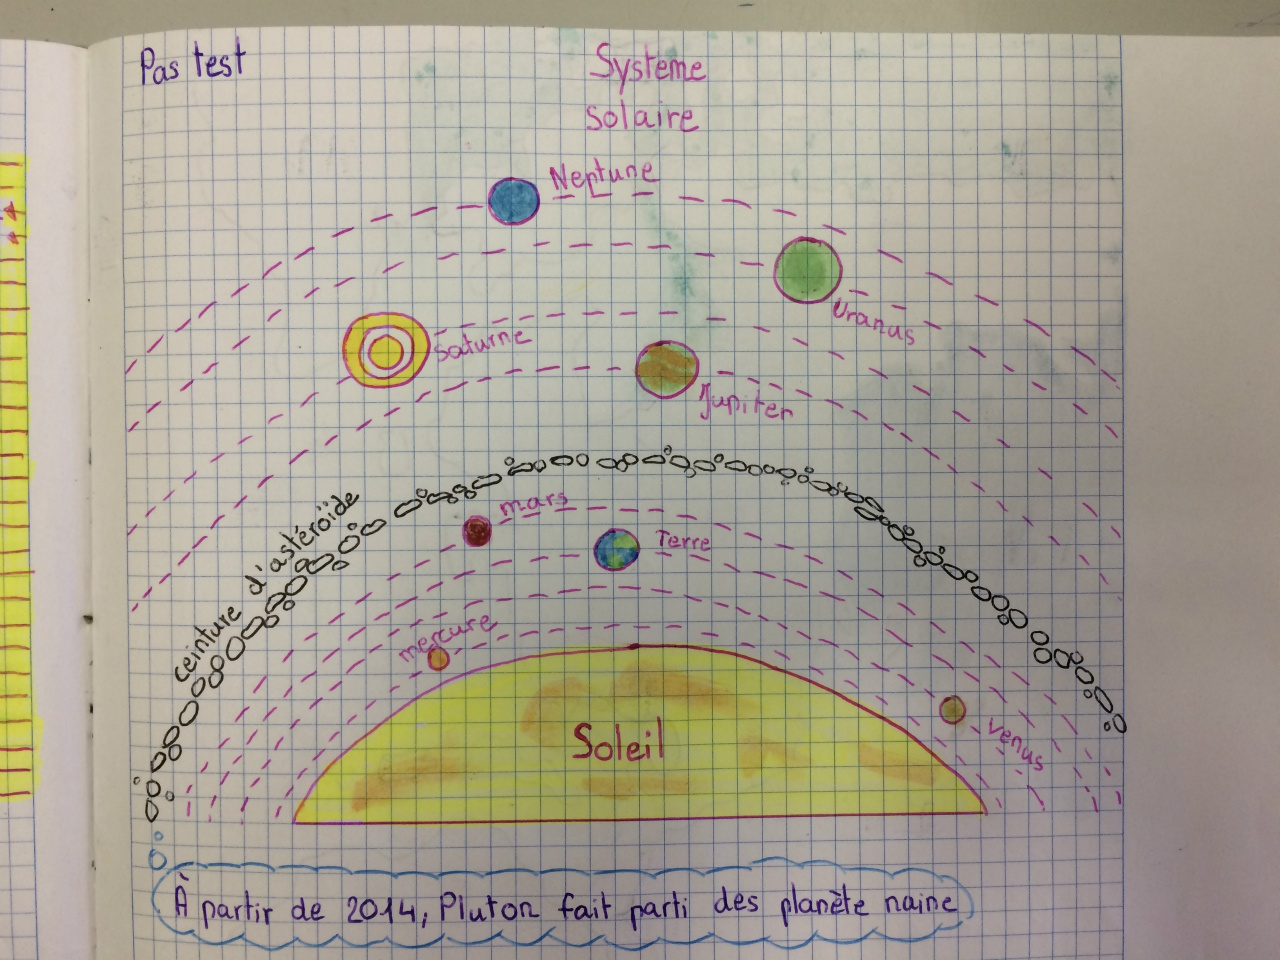 Pas test
Systeme
solaire
Neptune
Uranus
Saturne
Jupiter
ceinture d'astéroïde
mars
Terre
mercure
Venus
Soleil
À partir de 2014, Pluton fait parti des planète naine